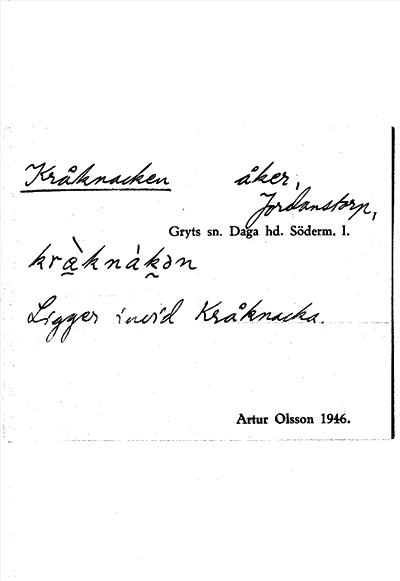 Kråknacken åker,
Jordanstorp,
Gryts sn. Daga hd. Söderm. l.
kràknàkən
Ligger invid Kråknacka.
Artur Olsson 1946.